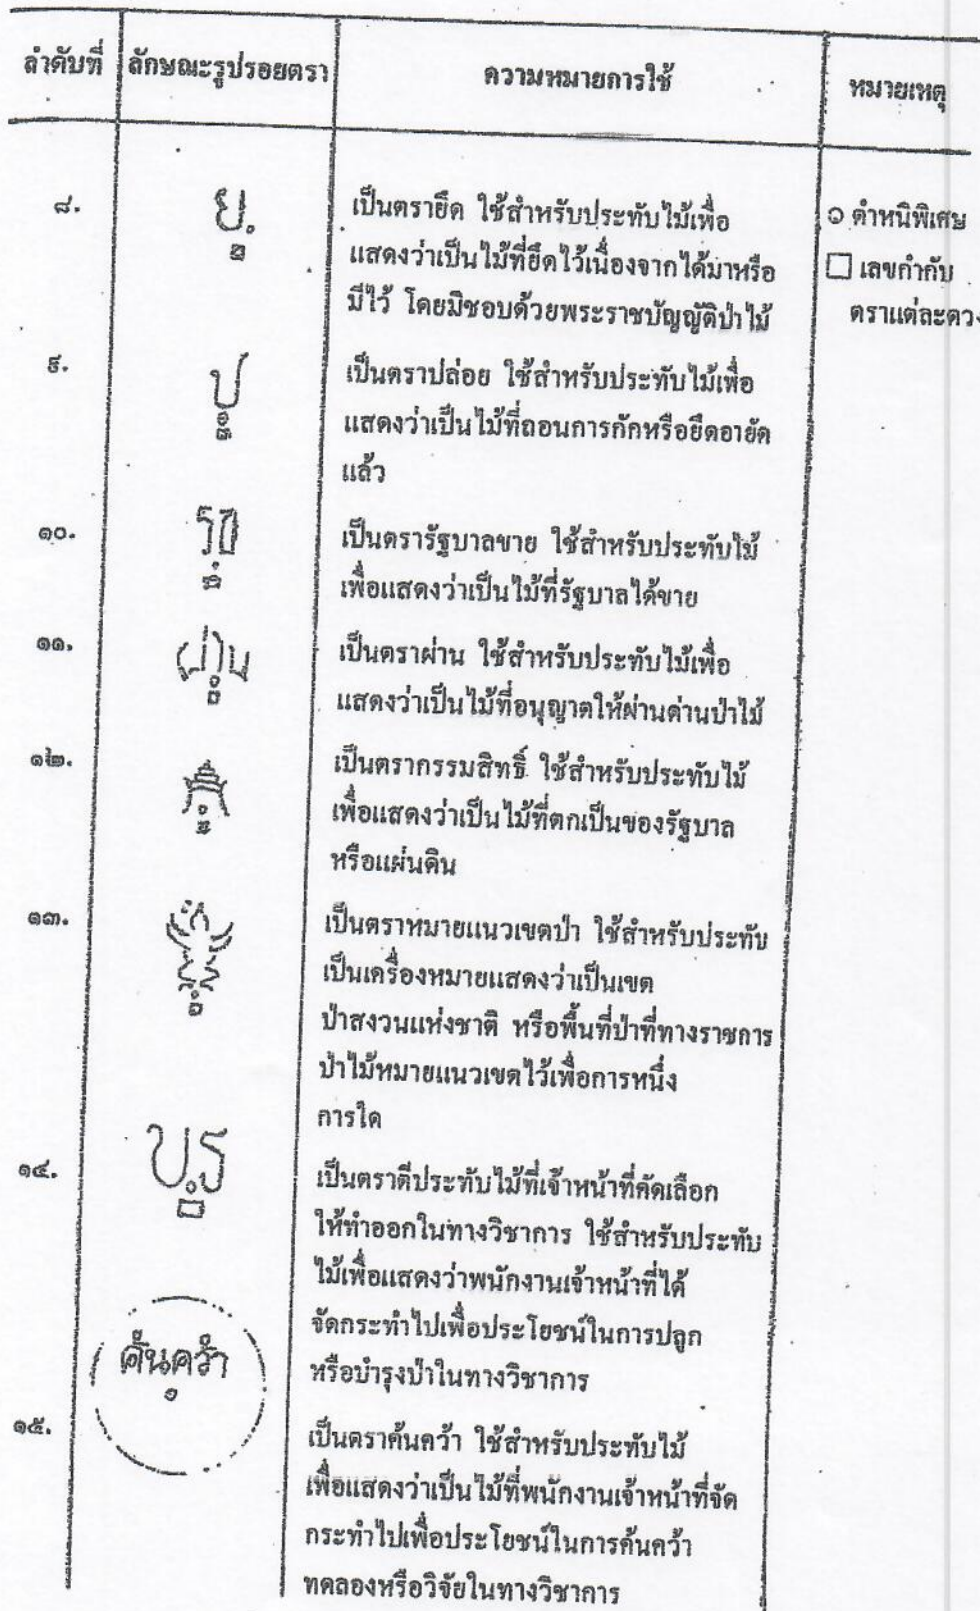 ลำดับที่ ลักษณะรูปรอยตรา ความหมายการใช้ หมายเหตุ
๘. ย. เป็นตรายึด ใช้สำหรับประทับไม้เพื่อ ๐ ตำหนิพิเศษ
แสดงว่าเป็นไม้ที่ยึดไว้เนื่องจากได้มาหรือ □ เลขกำกับ
มีไว้ โดยมิชอบด้วยพระราชบัญญัติป่าไม้ ตราแต่ละดวง
๙. ป เป็นตราปล่อย ใช้สำหรับประทับไม้เพื่อ
แสดงว่าเป็นไม้ที่ถอนการกักหรือยึดอายัด
แล้ว
๑๐. รข เป็นตรารัฐบาลขาย ใช้สำหรับประทับไม้
เพื่อแสดงว่าเป็นไม้ที่รัฐบาลได้ขาย
๑๑. ผ่าน เป็นตราผ่าน ใช้สำหรับประทับไม้เพื่อ
แสดงว่าเป็นไม้ที่อนุญาตให้ผ่านด่านป่าไม้
๑๒. เป็นตรากรรมสิทธิ์ ใช้สำหรับประทับไม้
เพื่อแสดงว่าเป็นไม้ที่ตกเป็นของรัฐบาล
หรือแผ่นดิน
๑๓. เป็นตราหมายแนวเขตป่า ใช้สำหรับประทับ
เป็นเครื่องหมายแสดงว่าเป็นเขต
ป่าสงวนแห่งชาติ หรือพื้นที่ป่าที่ทางราชการ
ป่าไม้หมายแนวเขตไว้เพื่อการหนึ่ง
การใด
๑๔. บร เป็นตราตีประทับไม้ที่เจ้าหน้าที่คัดเลือก
ให้ทำออกในทางวิชาการ ใช้สำหรับประทับ
ไม้เพื่อแสดงว่าพนักงานเจ้าหน้าที่ได้
จัดกระทำไปเพื่อประโยชน์ในการปลูก
หรือบำรุงป่าในทางวิชาการ
ค้นคว้า
๑๕. เป็นตราค้นคว้า ใช้สำหรับประทับไม้
เพื่อแสดงว่าเป็นไม้ที่พนักงานเจ้าหน้าที่จัด
กระทำไปเพื่อประโยชน์ในการค้นคว้า
ทดลองหรือวิจัยในทางวิชาการ